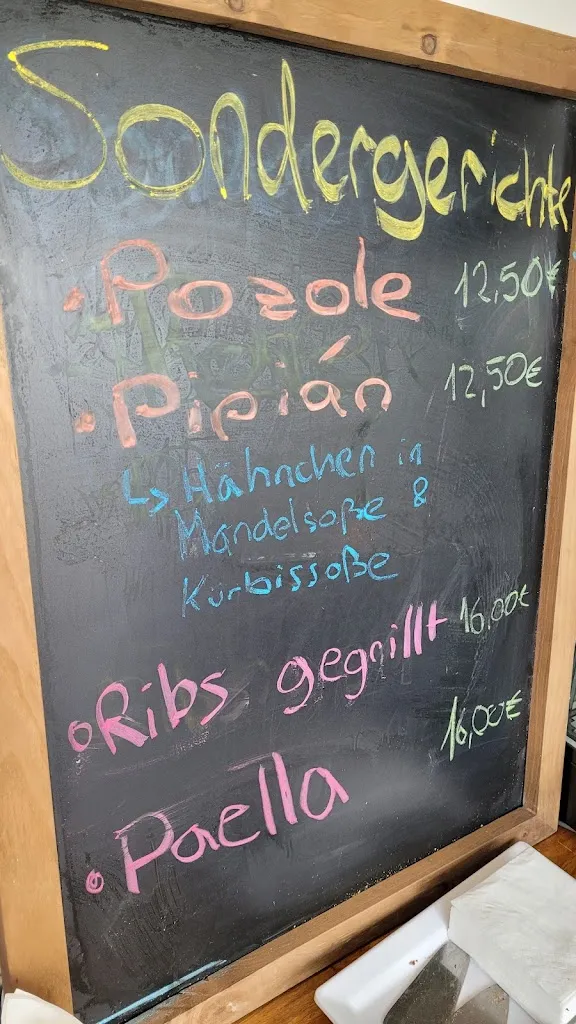 Sondergerichte
• Pozole 12,50€
• Pipián 12,50€
↳ Hähnchen in
Mandelsoße &
Kürbissoße
• Ribs gegrillt 16,00€
• Paella 16,00€